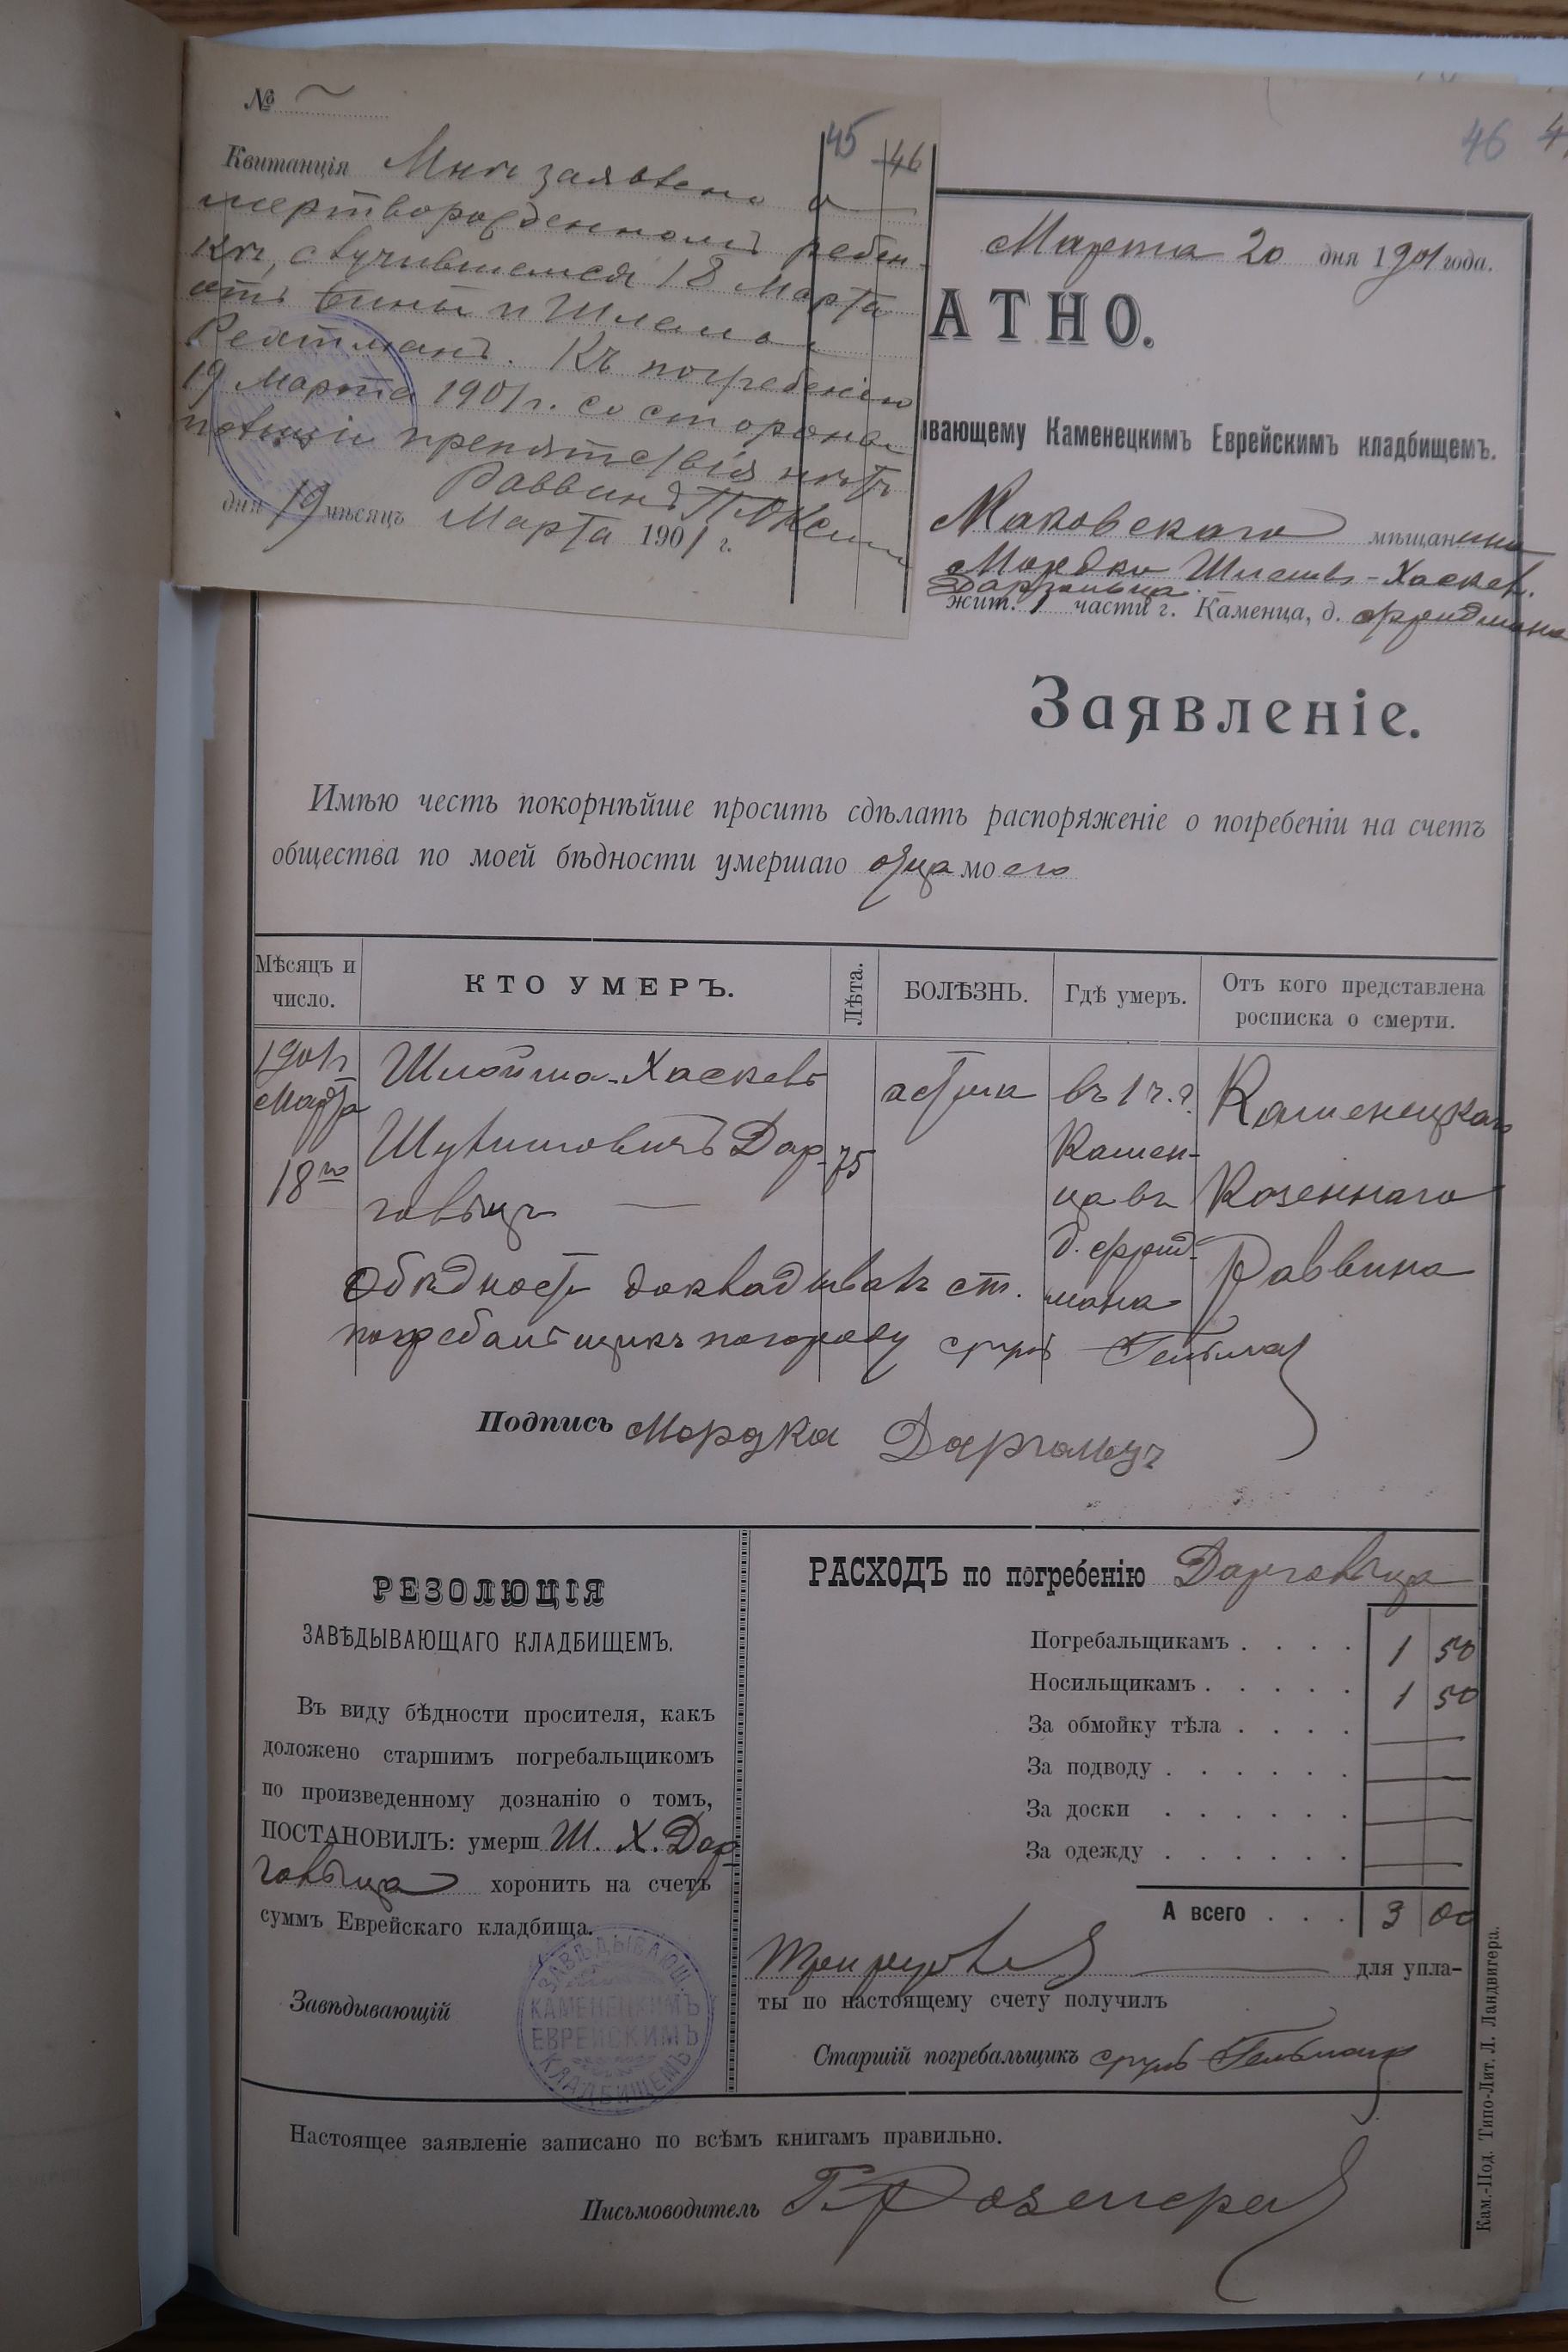 №
45 46
Квитанція Мнѣ заявлено о
мертворожденномъ ребен-
кѣ, случившемся 18 Марта
отъ Бини и Шлема
Ройтманъ. Къ погребенію
19 Марта 1901 г. со стороны
полиціи препятствія нѣтъ
Раввинъ
дня 19 мѣсяцъ Марта 1901 г.
46
Марта 20 дня 1901 года.
АТНО.
ывающему Каменецкимъ Еврейскимъ кладбищемъ.
Маковскаго мѣщанина
Мордко Шлемы-Хаскел.
жит. 1 части г. Каменца, д. Фридмана
Заявленіе.
Имѣю честь покорнѣйше просить сдѣлать распоряженіе о погребеніи на счетъ
общества по моей бѣдности умершаго отца моего
Мѣсяцъ и число.
КТО УМЕРЪ.
Лѣта.
БОЛѢЗНЬ.
Гдѣ умеръ.
Отъ кого представлена росписка о смерти.
1901 г. Марта 18го
Шлойма-Хаскель
Шулимовичъ Дар-
говецъ
75
астма
въ 1 ч. г.
Камен-
ца въ
д. Фрид-
мана
Каменецкаго
Казеннаго
Раввина
О бѣдности докладывалъ ст.
погребальщикъ по городу Сруль Гельман
Подпись Мордка Дарговецъ
РЕЗОЛЮЦІЯ
ЗАВѢДЫВАЮЩАГО КЛАДБИЩЕМЪ.
Въ виду бѣдности просителя, какъ
доложено старшимъ погребальщикомъ
по произведенному дознанію о томъ,
ПОСТАНОВИЛЪ: умерш Ш. Х. Дар-
говеца хоронить на счетъ
суммъ Еврейскаго кладбища.
Завѣдывающій
ЗАВѢДЫВАЮЩ.
КАМЕНЕЦКИМЪ
ЕВРЕЙСКИМЪ
КЛАДБИЩЕМЪ
РАСХОДЪ по погребенію Дарговеца
Погребальщикамъ . . . . 1 50
Носильщикамъ . . . . . 1 50
За обмойку тѣла . . . . —
За подводу . . . . . . —
За доски . . . . . . —
За одежду . . . . . . —
А всего . . . 3 00
Три рубля — для упла-
ты по настоящему счету получилъ
Старшій погребальщикъ Сруль Гельман
Настоящее заявленіе записано по всѣмъ книгамъ правильно.
Письмоводитель
Кам.-Под. Типо-Лит. Л. Ландвигера.